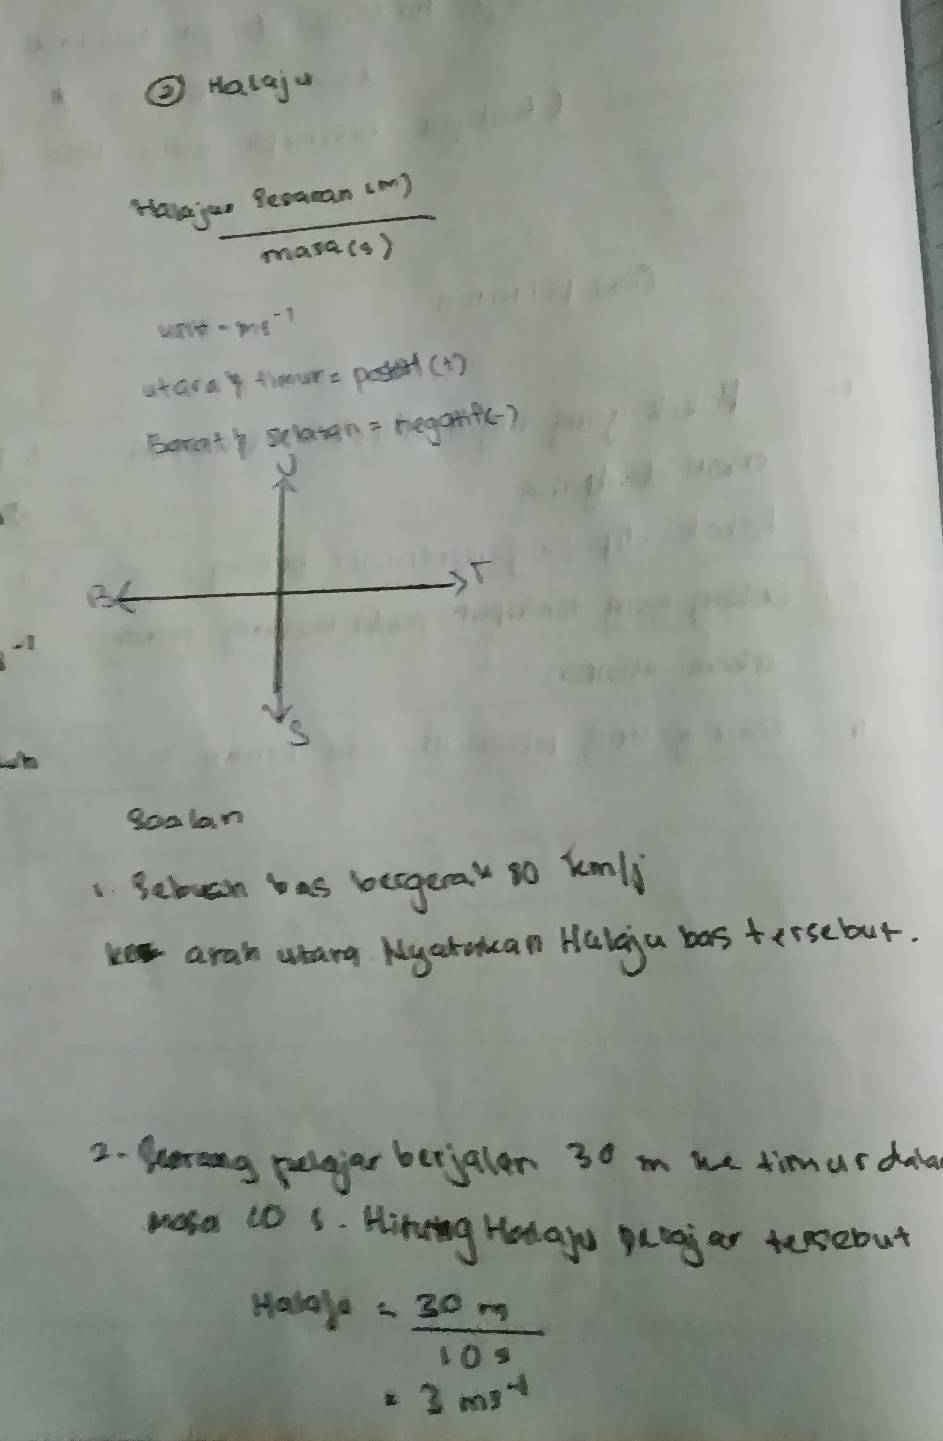 ② Halaju
Halaju = Sesaran (m)
masa (s)
unit = ms⁻¹
utara & timur = positif (+)
Barat & selatan = negatif (-)
U
B T
S
Soalan
1. Sebuah bas bergerak 80 km/j
ke arah utara Nyatakan Halaju bas tersebut.
2. Seorang pelajar berjalan 30 m ke timur dalam
masa 10 s. Hitung Halaju pelajar tersebut
Halaju = 30 m
10 s
= 3 ms⁻¹